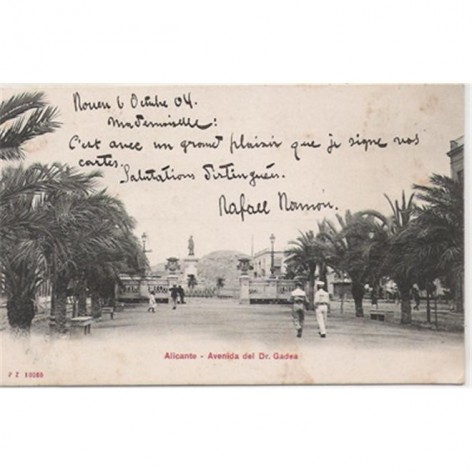 Rouen 6 Octubre 04.
Mademoiselle:
C'est avec un grand plaisir que je signe vos
cartes.
Salutations distinguées.
Rafael Ramón.
Alicante - Avenida del Dr. Gadea
P Z 10089